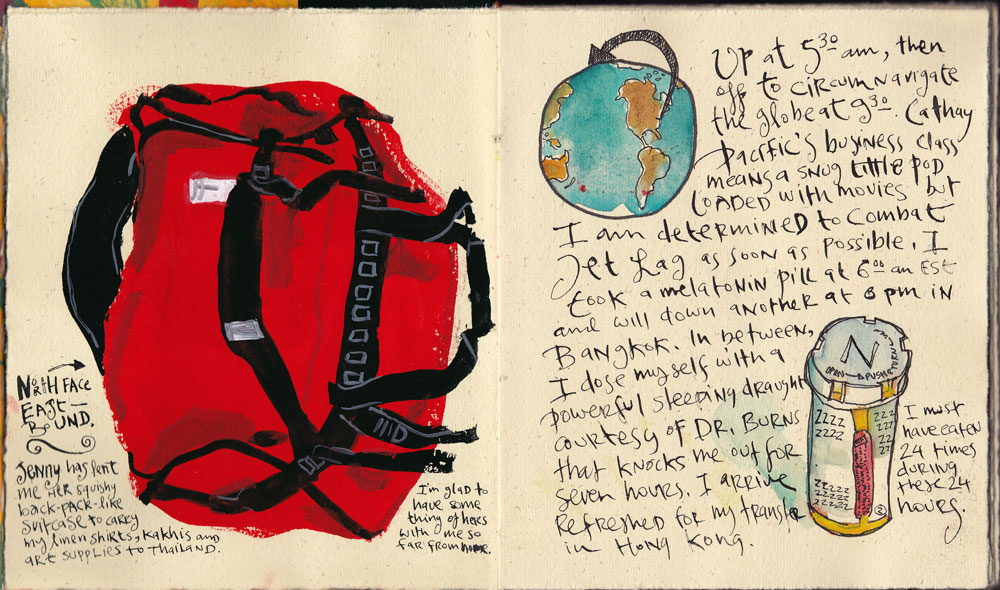 NORTH FACE
EAST—
BOUND.
Jenny has lent
me her squishy
back-pack-like
suitcase to carry
my linen shirts, kakhis and
art supplies to Thailand.
I'm glad to
have some
thing of hers
with me so
far from home.
Up at 5³⁰ am, then
off to circumnavigate
the globe at 9³⁰. Cathay
Pacific's business class
means a snug little pod
loaded with movies but
I am determined to combat
Jet Lag as soon as possible. I
took a melatonin pill at 6⁰⁰ am EST
and will down another at 8 pm in
Bangkok. In between,
I dose myself with a
powerful sleeping draught
courtesy of DR. BURNS
that knocks me out for
seven hours. I arrive
refreshed for my transfer
in Hong Kong.
N
OPEN PUSH & TURN
ZZZZ
ZZZZ
ZZZZ
ZZZZZ
ZZZZZ
ZZZ
ZZZ
ZZ
Z?
I must
have eaten
24 times
during
these 24
hours.